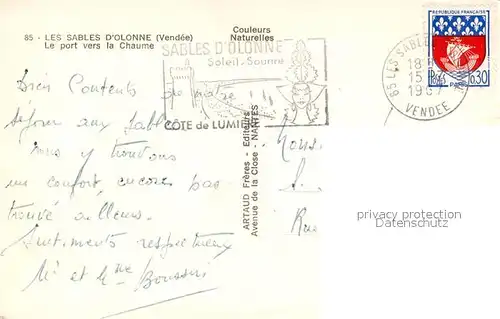 85 - LES SABLES D'OLONNE (Vendée)
Le port vers la Chaume
Couleurs
Naturelles
SABLES D'OLONNE
Soleil - Sourire
CÔTE de LUMIÈRE
RÉPUBLIQUE FRANÇAISE
PARIS
0,30
85 LES SABLES
18
15
19
VENDÉE
Bien contents de notre
séjour aux Sables
nous y trouvons
un confort, encore pas
trouvé ailleurs.
Sentiments respectueux
Mr et Mme
ARTAUD Frères - Editeurs
Avenue de la Close - NANTES
Mons
Rue
privacy protection
Datenschutz